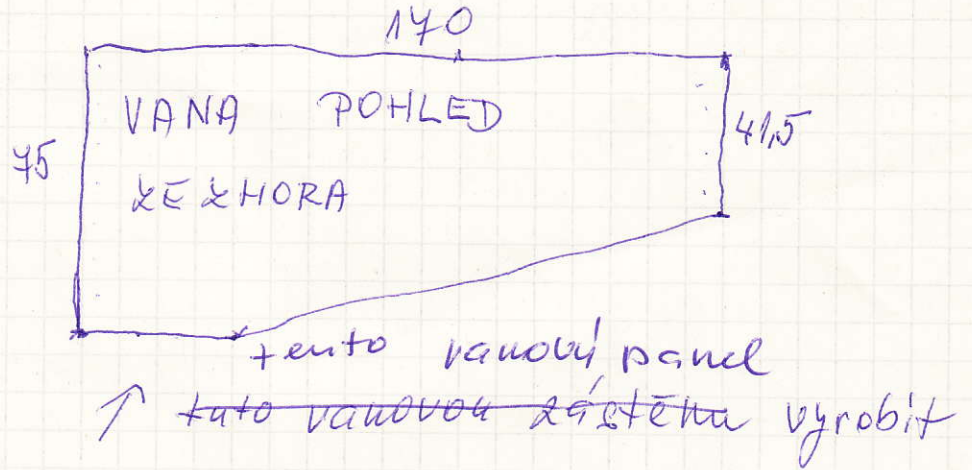 170
VANA POHLED
41,5
75
ZE ZHORA
tento vanový panel
↑ tuto vanovou zástěnu vyrobit